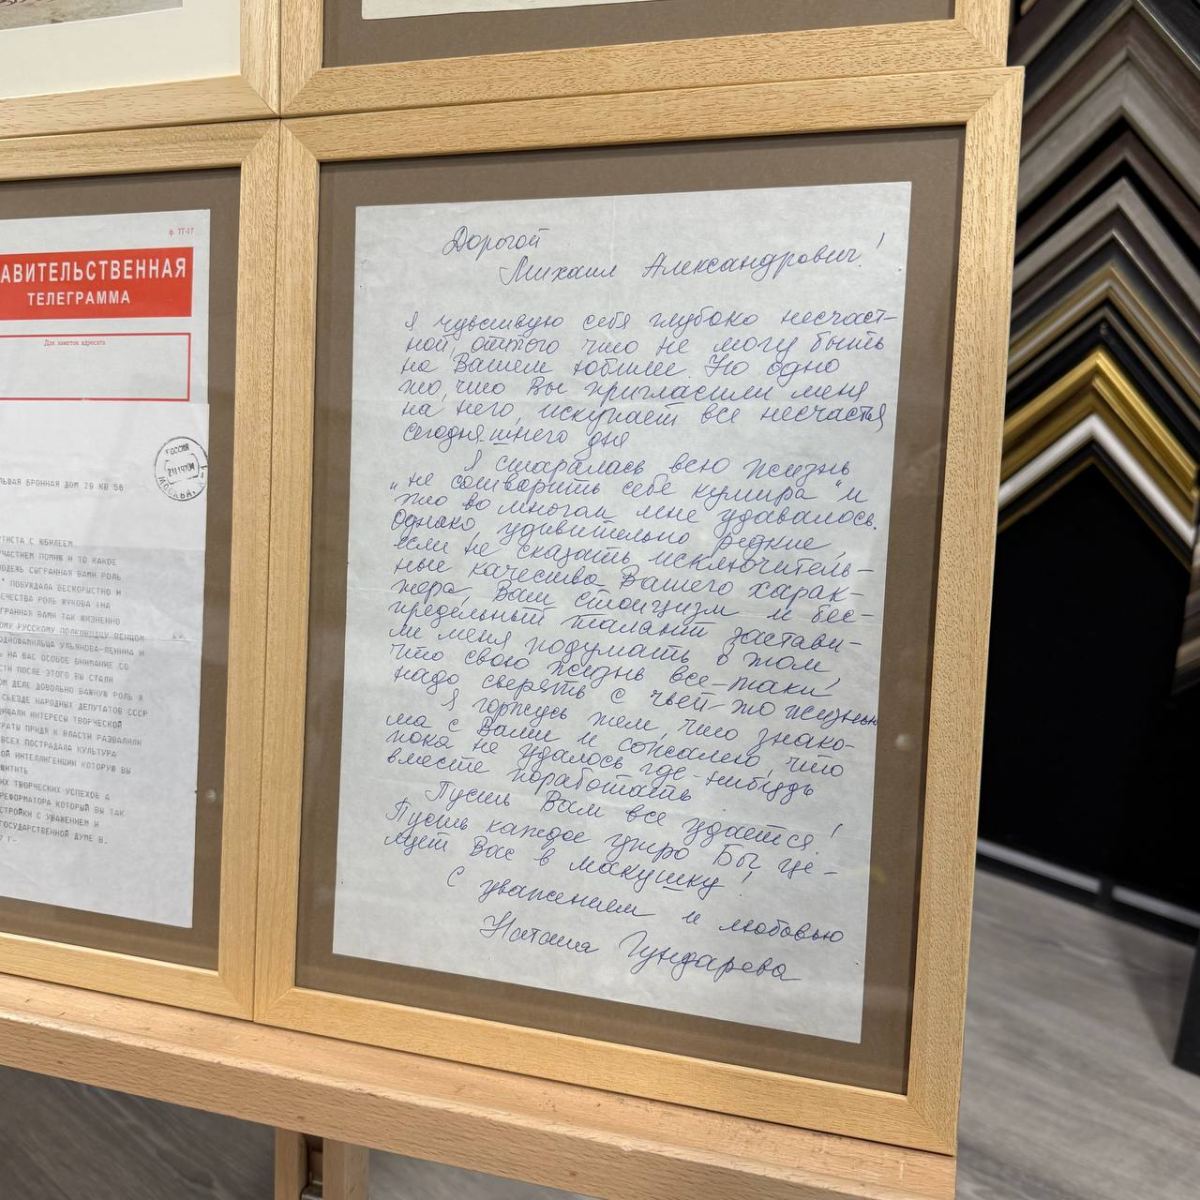 ф. ТГ-17
АВИТЕЛЬСТВЕННАЯ
ТЕЛЕГРАММА
Для заметок адресата
РОССИЯ
МОСКВА
БРОННАЯ ДОМ 29 КВ 56
ТИСТА С ЮБИЛЕЕМ
ЧАСТИЕМ ПОМНЮ И ТО КАКОЕ
СЫГРАННАЯ ВАМИ РОЛЬ
" ПОБУЖДАЛА БЕСКОРЫСТНО И
ЕЧЕСТВА РОЛЬ ЖУКОВА
ГРАННАЯ ВАМИ ТАК ЖИЗНЕННО
ОМУ РУССКОМУ ПОЛКОВОДЦУ
ОДНОФАМИЛЬЦА УЛЬЯНОВА-ЛЕНИНА И
НА ВАС ОСОБОЕ ВНИМАНИЕ СО
СТИ ПОСЛЕ ЭТОГО ВЫ СТАЛИ
ОМ ДЕЛЕ ДОВОЛЬНО ВАЖНУЮ РОЛЬ Я
СЪЕЗДЕ НАРОДНЫХ ДЕПУТАТОВ СССР
ИНТЕРЕСЫ ТВОРЧЕСКОЙ
РАТЫ ПРИДЯ К ВЛАСТИ РАЗВАЛИЛИ
ВСЕХ ПОСТРАДАЛА КУЛЬТУРА
ОЙ ИНТЕЛЛИГЕНЦИИ КОТОРУЮ ВЫ
ИХ ТВОРЧЕСКИХ УСПЕХОВ А
РЕФОРМАТОРА КОТОРЫЙ ВЫ ТАК
СТРОЙКИ С УВАЖЕНИЕМ И
ГОСУДАРСТВЕННОЙ ДУМЕ В.
Дорогой
Михаил Александрович!
Я чувствую себя глубоко несчаст-
ной, оттого что не могу быть
на Вашем юбилее. Но одно
то, что Вы пригласили меня
на него, искупает все несчастья
сегодняшнего дня
Я старалась всю жизнь
"не сотворить себе кумира" и
это во многом мне удавалось.
Однако удивительно редкие,
если не сказать исключитель-
ные качества Вашего харак-
тера, Ваш стоицизм и бес-
предельный талант застави-
ли меня подумать о том,
что свою жизнь все-таки
надо сверять с чьей-то жизнью
Я горжусь тем, что знако-
ма с Вами и сожалею, что
пока не удалось где-нибудь
вместе поработать
Пусть Вам все удается!
Пусть каждое утро Бы це-
лует Вас в макушку!
С уважением и любовью
Наташа Гундарева